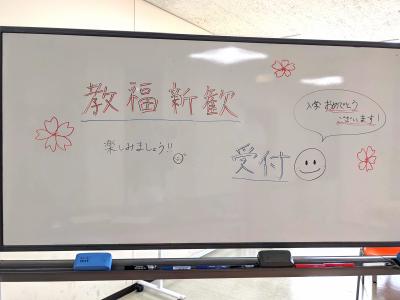 教福新歓
入学おめでとう
ございます!
楽しみましょう!!
受付